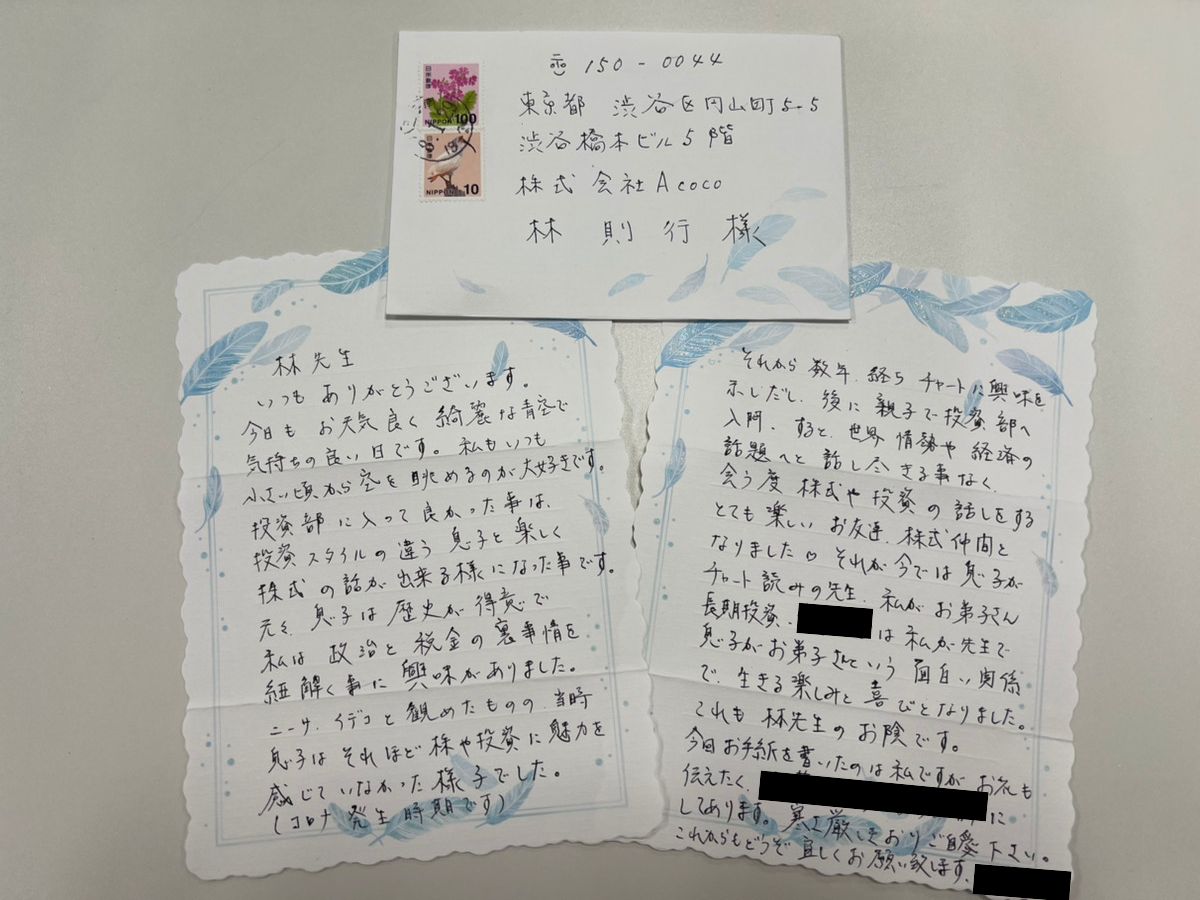 日本郵便
NIPPON 100
日本郵便
NIPPON 10
〒150-0044
東京都 渋谷区円山町5-5
渋谷橋本ビル5階
株式会社Acoco
林 則行 様
林先生
いつもありがとうございます。
今日も お天気良く 綺麗な青空で
気持ちの良い日です。私もいつも
小さい頃から空を眺めるのが大好きです。
投資部に入って良かった事は、
投資スタイルの違う息子と楽しく
株式の話が出来る様になった事です。
元々、息子は歴史が得意で
私は政治と税金の裏事情を
紐解く事に興味がありました。
ニーサ、イデコと観めたものの、当時
息子はそれほど株や投資に魅力を
感じていなかった様子でした。
(コロナ発生時期です)
それから数年、経ち チャートに興味を
示しだし、後に親子で投資部へ
入門、すると、世界情勢や経済の
話題へと話し尽きる事なく、
会う度 株式や投資の話しをする
とても楽しいお友達、株式仲間と
なりました♡ それが今では息子が
チャート読みの先生、私がお弟子さん
長期投資、は私が先生で
息子がお弟子さんという面白い関係
で、生きる楽しみと喜びとなりました。
これも林先生のお陰です。
今回お手紙を書いたのは私ですが お礼も
伝えたく、に
してあります。寒さ厳しきおりご自愛下さい。
これからもどうぞ宜しくお願い致します。